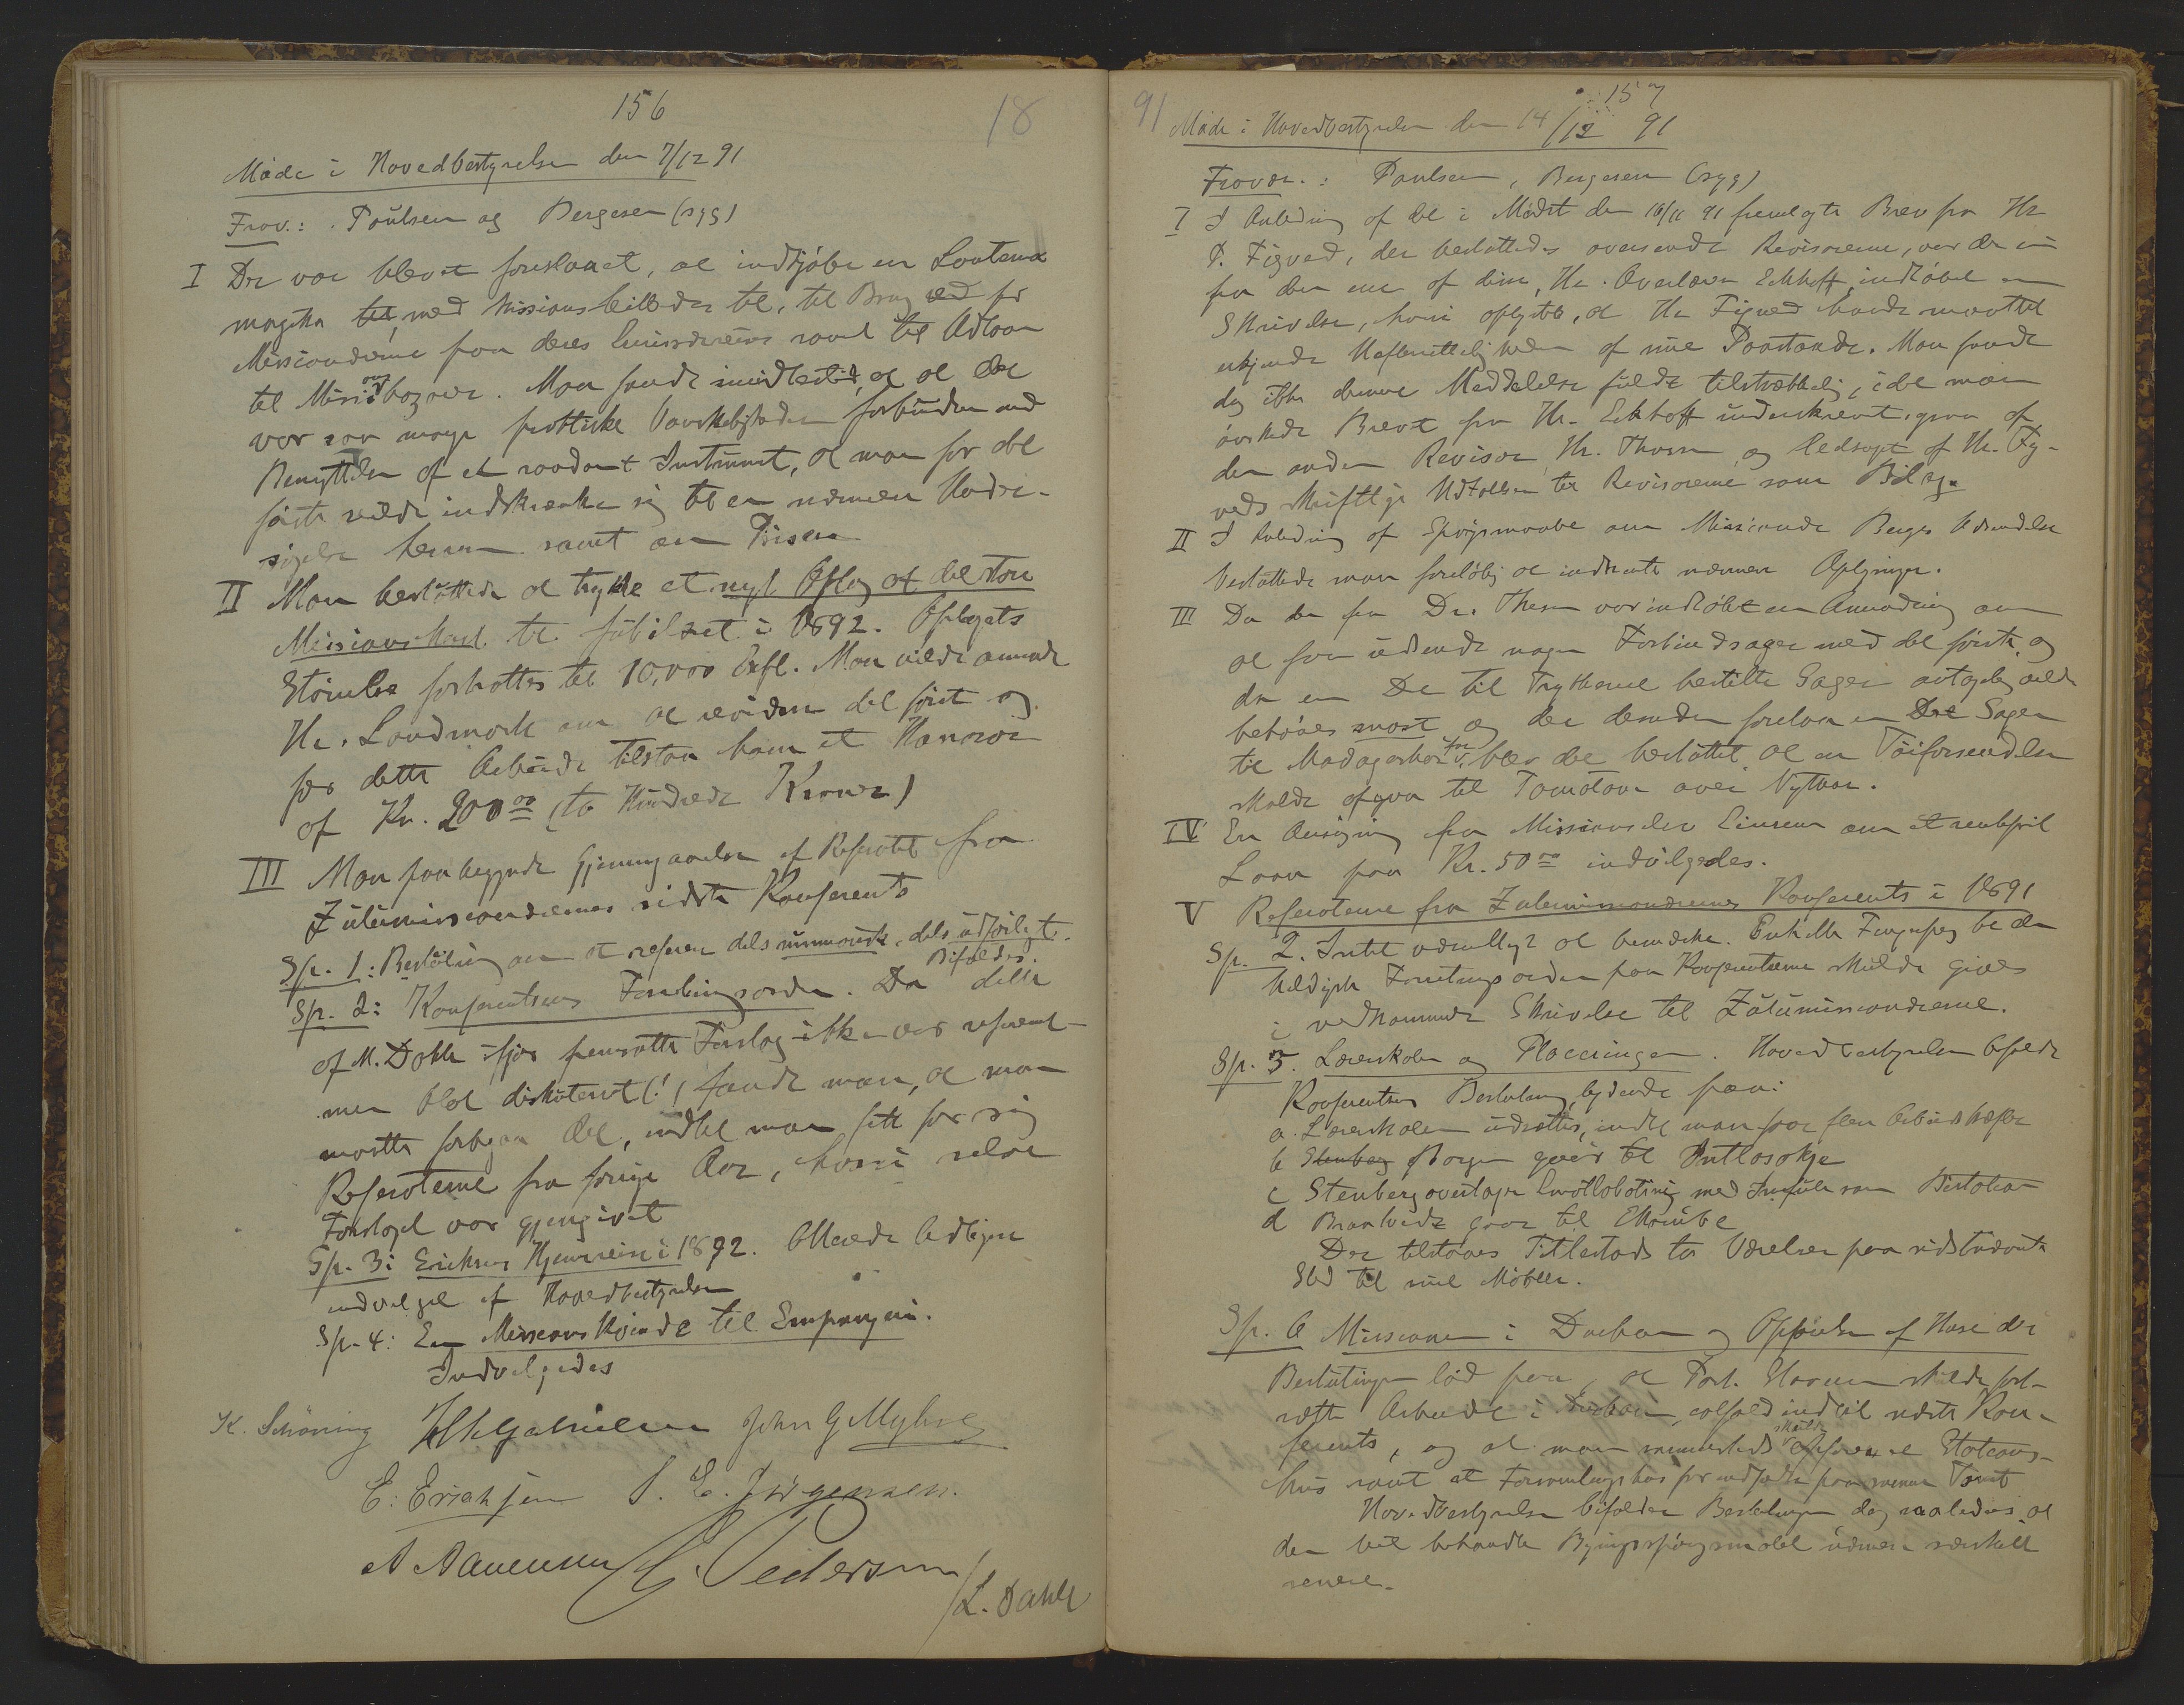 156
18
Møde i Hovedbestyrelsen den 7/12 91
Frav.: Poulsen og Bergesen (syg)
I Der var blevet foreslaaet, at indkjøbe en Lanterna
magika med Missionsbilleder til, til Brug for
Missionærerne paa deres samt til Udlaan
til Missionsbazarer. Man fandt imidlertid, at der
var saa mange praktiske Vanskeligheder forbunden med
Benyttelsen af et saadant Instrument, at man for det
første vilde indskrænke sig til en nærmere Under-
søgelse herom samt om Prisen
II Man besluttede at trykke et nyt Oplag af det store
Missionskart til Jubilæet i 1892. Oplagets
Størrelse fastsattes til 10,000 Expl. Man vilde anmode
Hr. Landmark om at revidere det først og
for dette Arbeide tilstaa ham et Honorar
af Kr. 200 00 (to Hundrede Kroner)
III Man paabegyndte Gjennemgaaelsen af Referatet fra
Zulumissionærernes sidste Konferents
Sp. 1: Beslutning om at referere dels summarisk, dels udførligt.
Bifaldes.
Sp. 2: Konferentsens Forretningsorden. Da dette
af M. Dahle ifjor fremsatte Forslag ikke var refereret
men blot diskuteret (!) fandt man, at man
maatte forbigaa det, indtil man fik for sig
Referaterne fra forrige Aar, hvori selve
Forslaget var gjengivet
Sp. 3: Eriksens Hjemreise i 1892. Allerede tidligere
indvilget af Hovedbestyrelsen
Sp. 4: En Missionskvinde til Empangeni.
Indvilgedes
K. Schøning John G Myhre
E: Erichsen S. E. Jørgensen.
A Aanensen Pedersen
L. Dahle
91
157
Møde i Hovedbestyrelsen den 14/12 91
Fravær.: Poulsen, Bergesen (syg)
I I Anledning af det i Mødet den 16/11 91 fremlagte Brev fra Hr
P. Figved, der besluttedes oversendt Revisorerne, var der nu
fra den ene af disse, Hr. Overlærer Eckhoff indløbet en
Skrivelse, hvori oplystes, at Hr Figved havde maattet
erkjende Uefterretteligheden af sine Paastande. Man fandt
dog ikke denne Meddelelse fuldt tilstrækkelig, idet man
ønskede Brevet fra Hr. Eckhoff underskrevet ogsaa af
den anden Revisor, Hr. Thorsen og ledsaget af Hr. Fig-
veds skriftlige Udtalelser til Revisorerne som Bilage
II I Anledning af Spørgsmaalet om Missionær Berges Udsendelse
besluttede man foreløbig at indhente nærmere Oplysninger.
III Da der fra Dr. Thesen var indløbet en Anmodning om
at faa udsendt nogen Forbindsager med det første, og
da en Del til Trykkeriet bestilte Sager antagelig vilde
behøves snart og der desuden forelaa en Del Sager
til Madagaskar blev det besluttet at en Tøiforsendelse
skulde afgaa til Tamatave over Nytaar.
IV En Ansøgning fra Missionselev Einrem om et rentefrit
Laan paa Kr. 50 00 indvilgedes.
V Referaterne fra Zulumissionærernes Konferents i 1891
Sp. 2. Intet væsentligt at bemærke. Enkelte Fingerpeg be den
heldigste Forretningsorden paa Konferentserne skulde gives
i vedkommende Skrivelse til Zulumissionærerne.
Sp. 5. Lærerskolen og Placeringen. Hovedbestyrelsen bifaldt
Konferentsens Beslutning lydende paa:
a. Lærerskolen udsættes, indtil man faar flere Arbeidskræfter
b Stenberg Borgen gaar til Ntlasakje
c Stenberg overtager Emotlabating med Inyula som Bistation
d Braatvedt gaar til Ekombe
Der tilstaaes Titlestads to Værelser paa sidstnævnte
Sted til sine Møbler.
Sp. 6 Missionen i Durban og Opførelse af Huse der
Beslutningen lød paa, at Past. Stavem skulde fort-
sætte Arbeidet i Durban, ialfald indtil næste Kon-
ferents, og at man skulde opføre et Stations-
hus samt et Forsamlingshus for indfødte paa samme Tomt
Hovedbestyrelsen bifalder Beslutningen dog saaledes, at
den vil behandle Bygningsspørgsmaalet nærmere særskilt
senere.